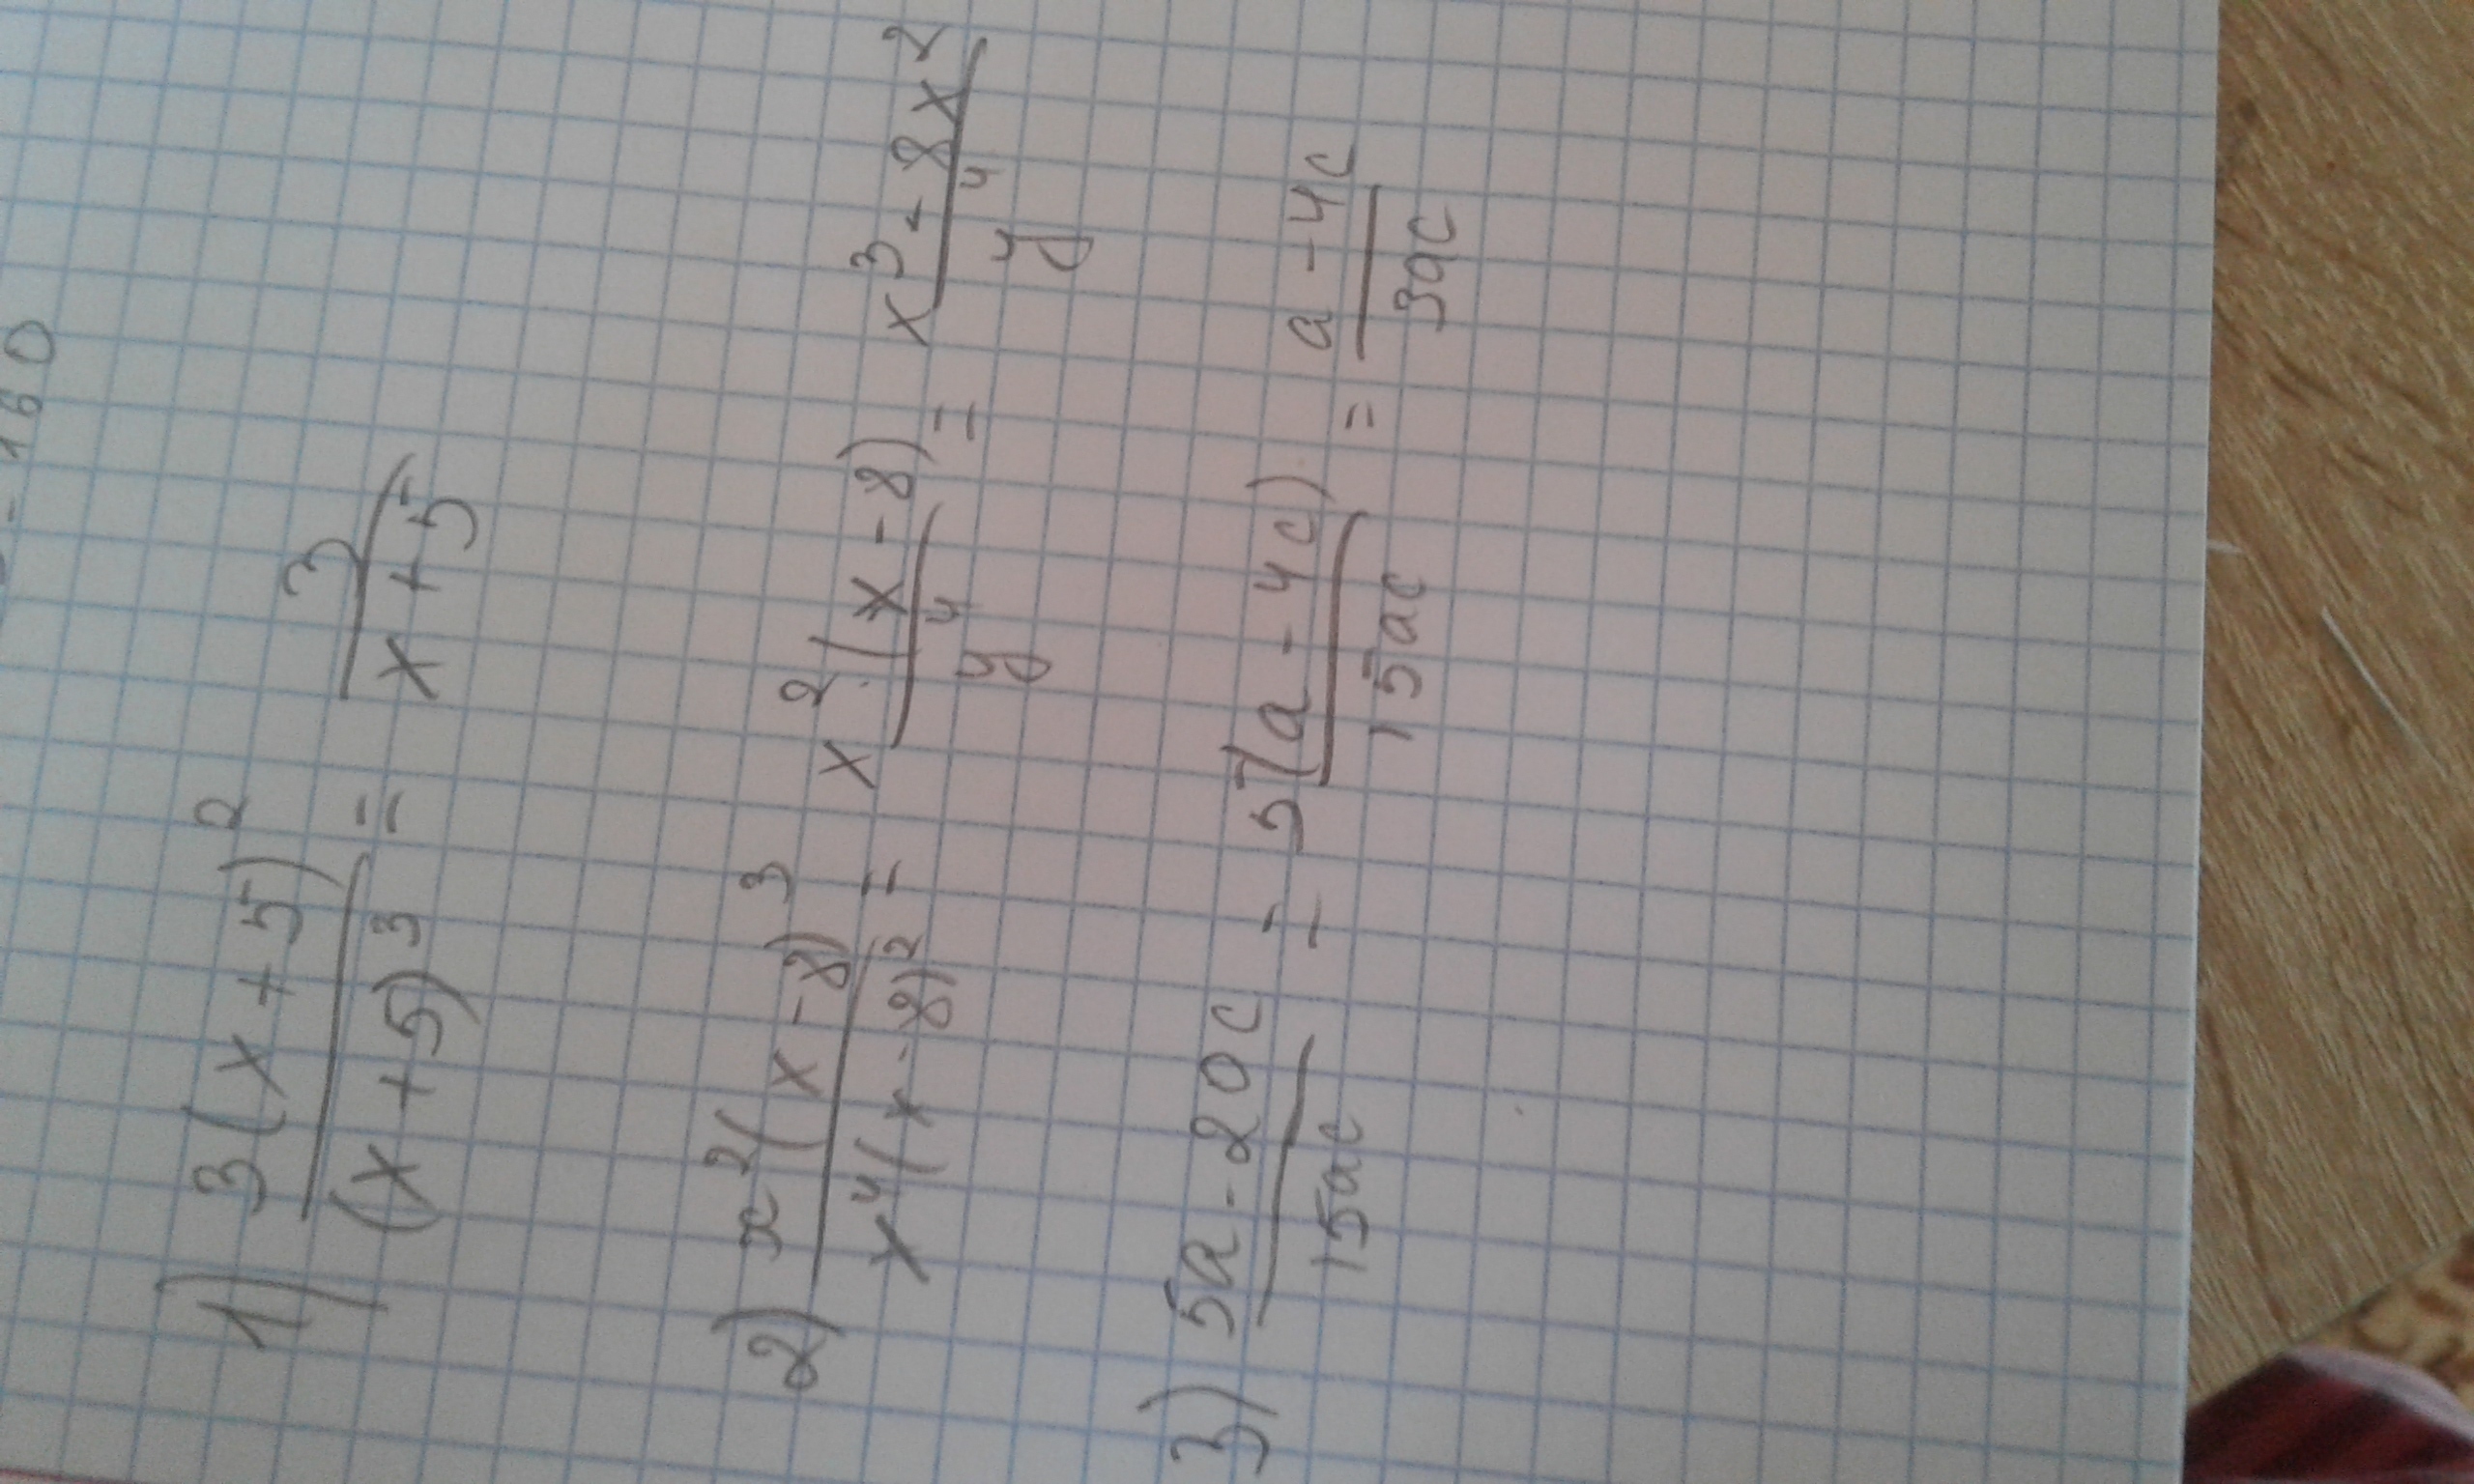 - 160
1) 3(x+5)² / (x+5)³ = 3 / x+5
2) x²(x-8)³ / x⁴(x-8)² = x²(x-8) / y⁴ = x³-8x² / y⁴
3) 5a-20c / 15ac = 5(a-4c) / 15ac = a-4c / 3ac